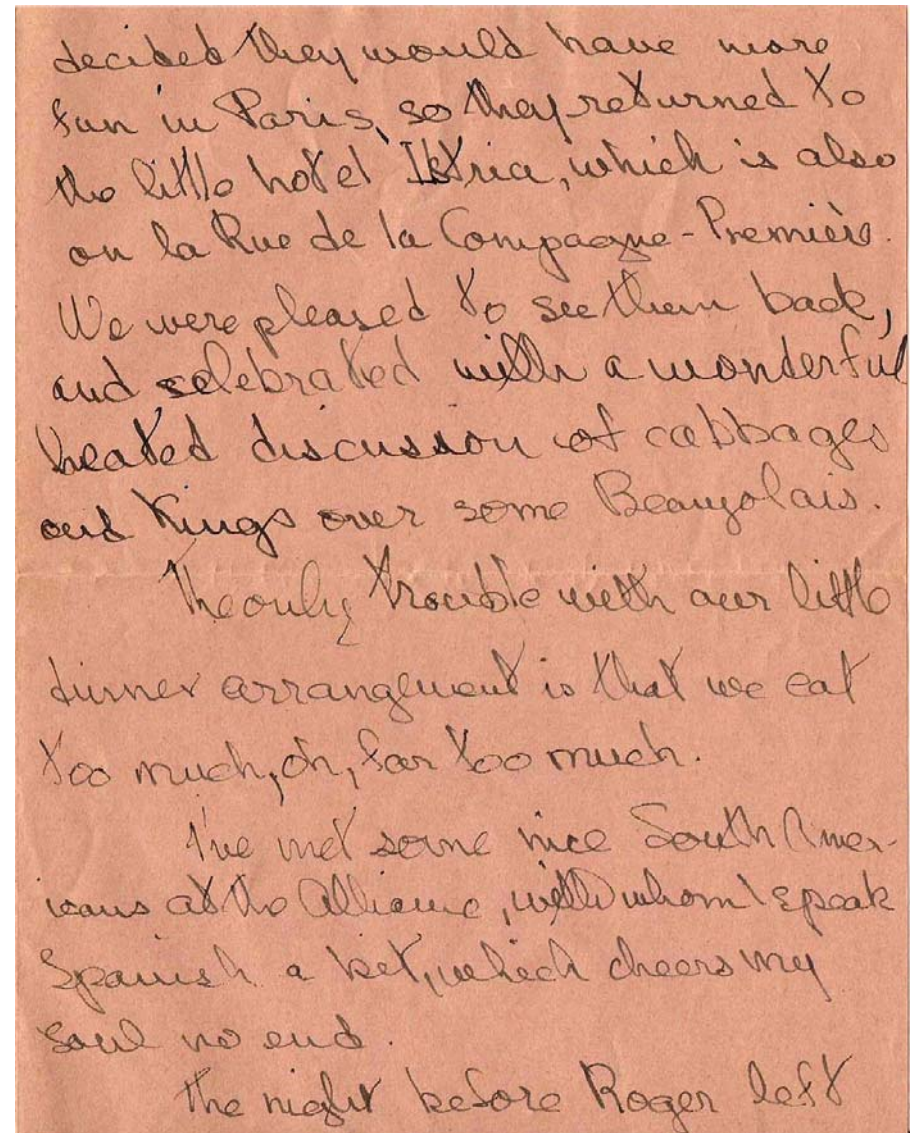 decided they would have more
fun in Paris, so they returned to
the little hotel Istria, which is also
on la Rue de la Compagne-Première.
We were pleased to see them back,
and celebrated with a wonderful
heated discussion of cabbages
and Kings over some Beaujolais.
The only trouble with our little
dinner arrangement is that we eat
too much, oh, far too much.
I've met some nice South Amer-
icans at the Alliance, with whom I speak
Spanish a bit, which cheers my
soul no end.
The night before Roger left